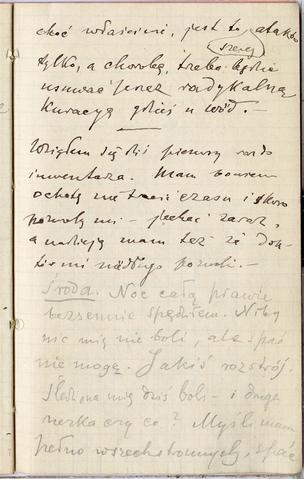 choć właściwie, jest to atak
tylko, a chorobę, trzeba będzie
(szerej)
usunąć przez radykalną
kuracyą gdzieś u wód. —
Wziąłem się dziś pierwszy raz do
inwentarza. Mam bowiem
ochotę nie tracić czasu i skoro
pozwolą mi – jechać zaraz,
a nadzieję mam też że dok-
tor mi niedługo pozwoli. —
Środa. Noc całą prawie
bezsennie spędziłem. Niby
nic mię nie boli, ale spać
nie mogę. Jakiś rozstrój.
Śledziona mię dziś boli – i druga
nerka czy co? Myśli mam
pełno wszechstronnych, spać